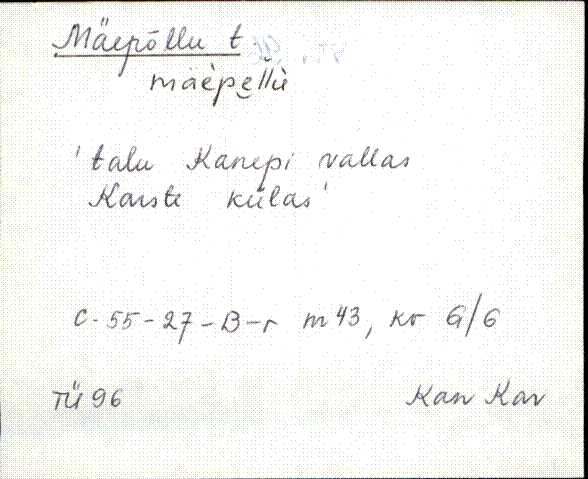 Mäepõllu t
mäèpe̮llù
'talu Kanepi vallas
Karste külas'
C-55-27-B-г m 43, kv G/6
TÜ 96 Kan Kar